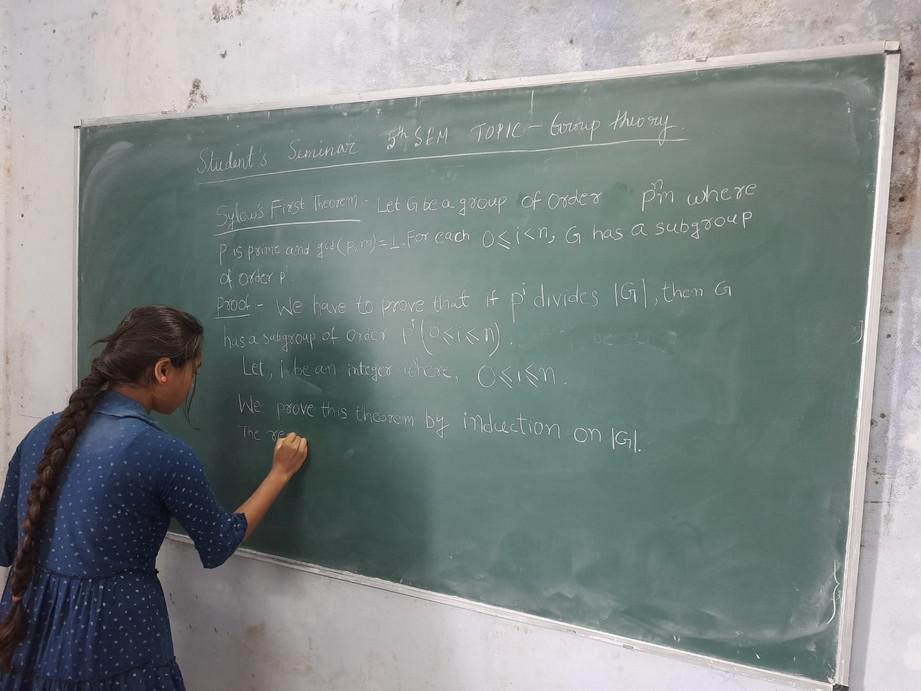 Student's Seminar 5th SEM TOPIC - Group theory.
Sylow's First Theorem - Let G be a group of order pⁿm where
p is prime and gcd(p,m)=1. For each 0⩽i<n, G has a subgroup
of order pⁱ.
Proof - We have to prove that if pⁱ divides |G|, then G
has a subgroup of order pⁱ (0⩽i⩽n).
Let, i be an integer where, 0⩽i⩽n.
We prove this theorem by induction on |G|.
The re